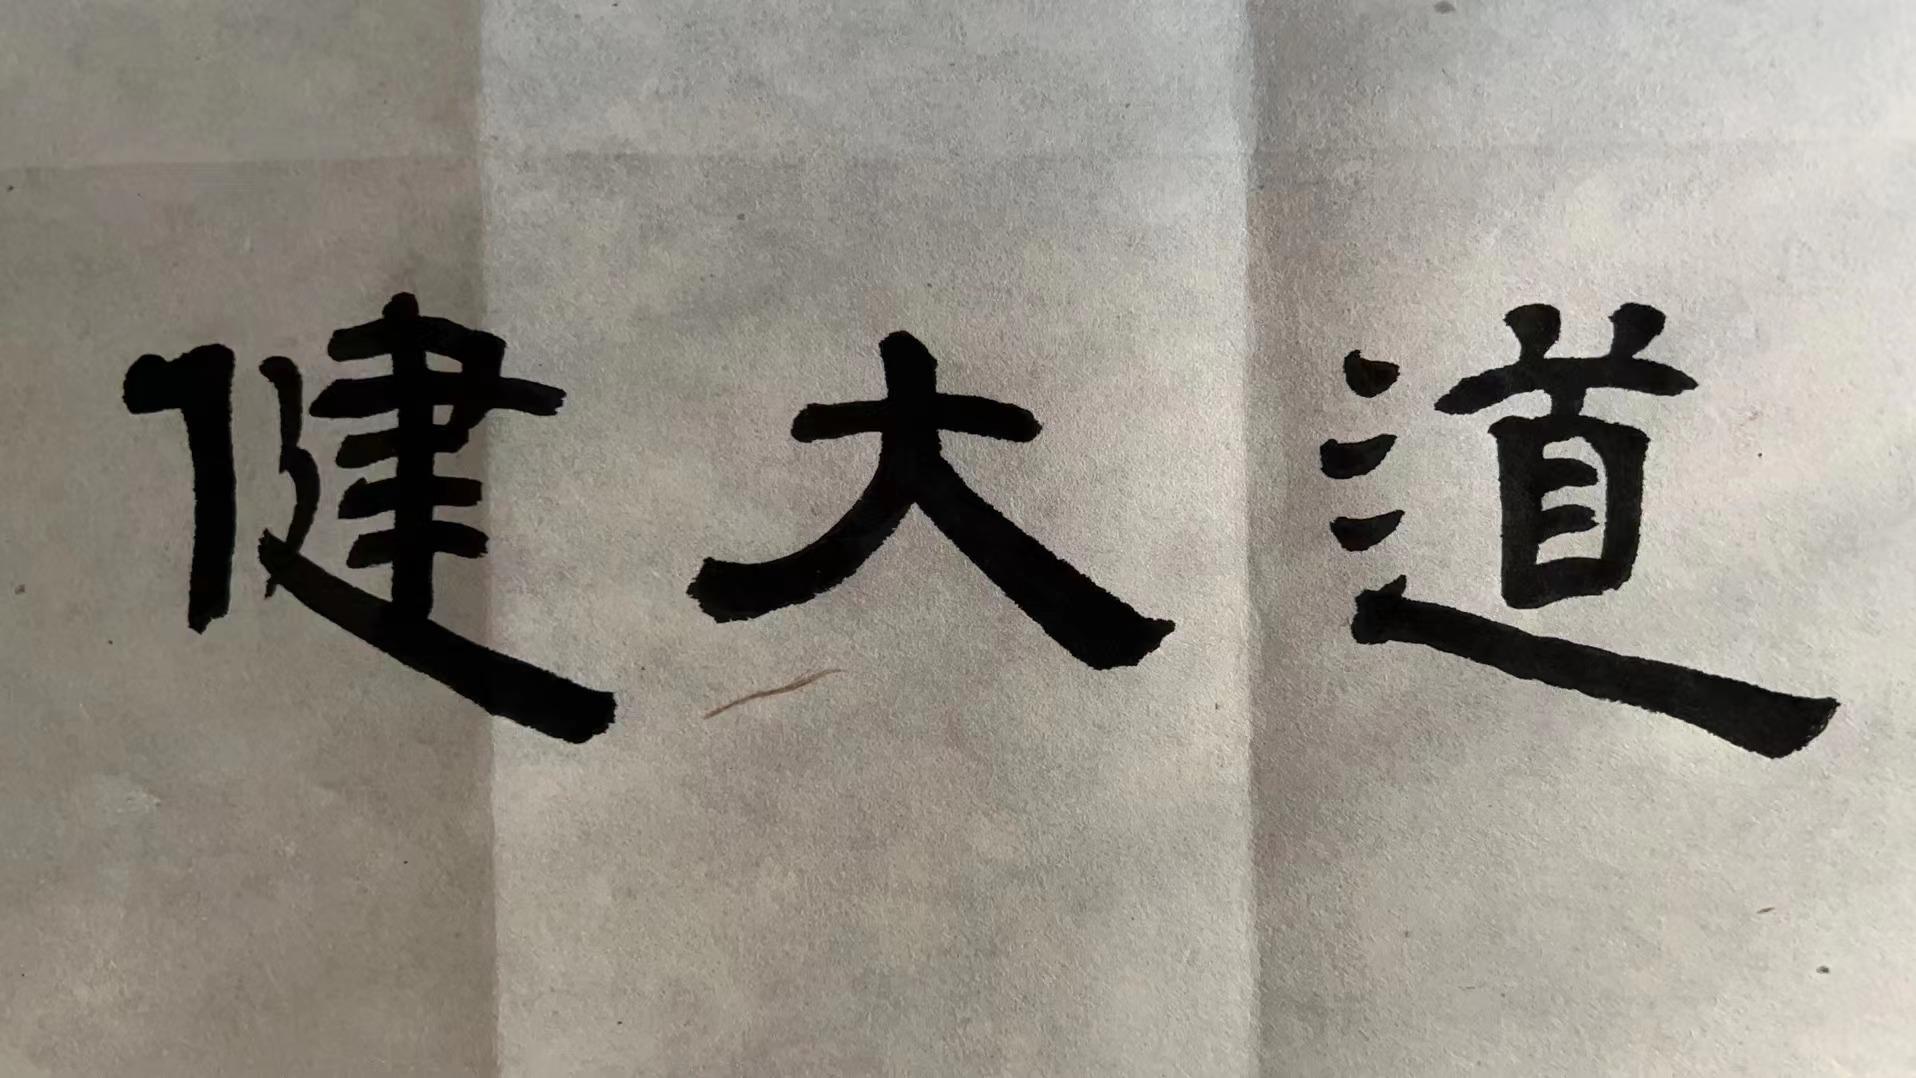 健大道